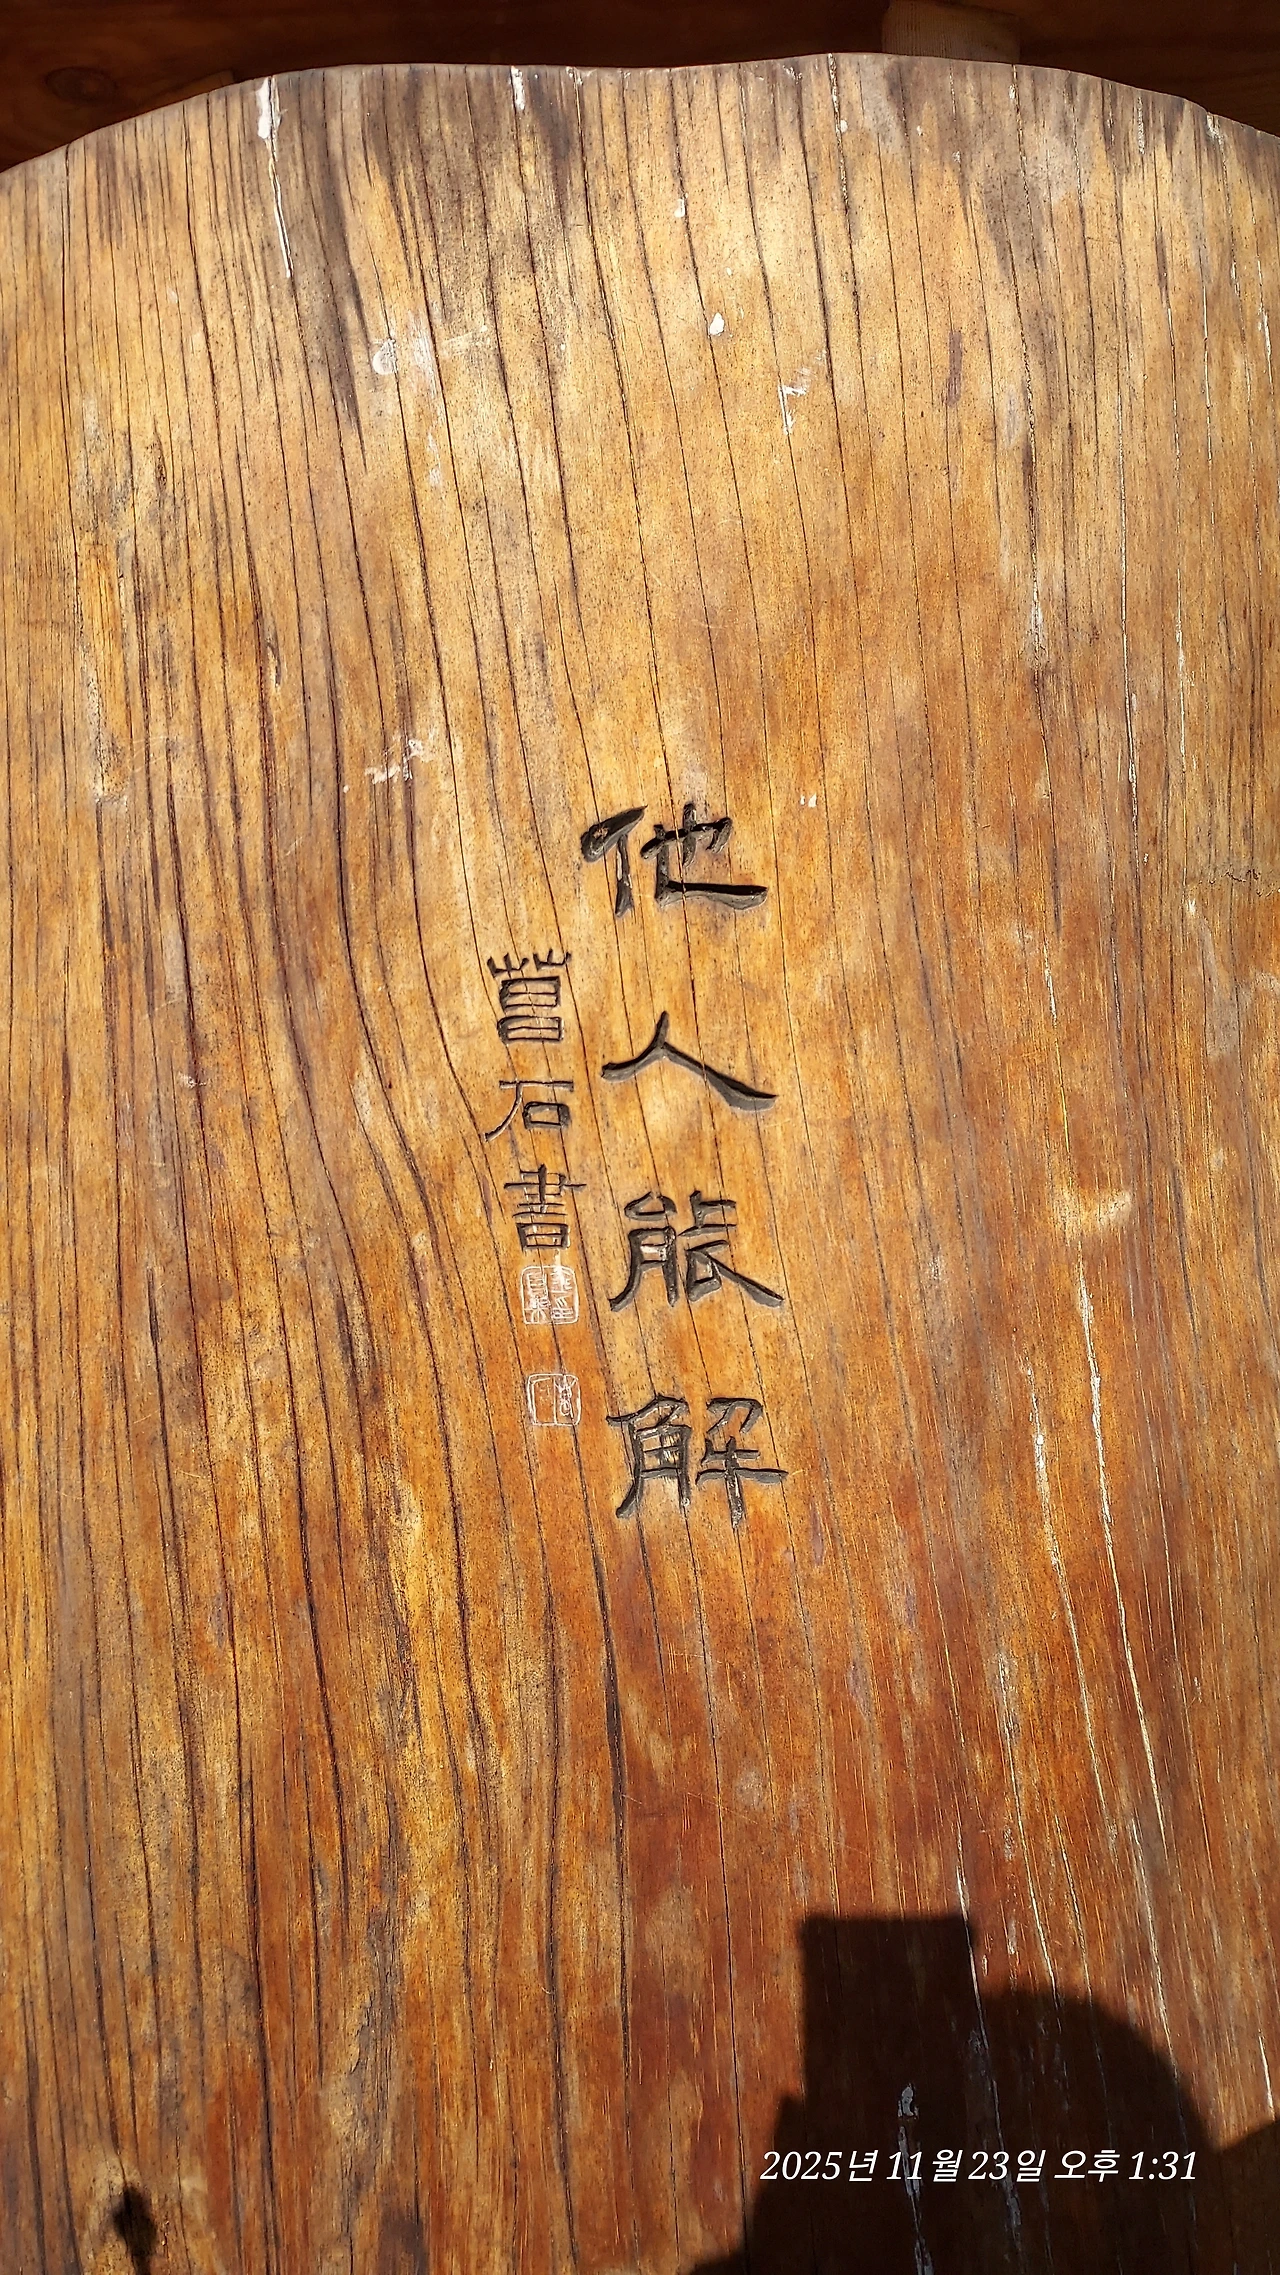 他人能解
菖石書
2025년 11월 23일 오후 1:31